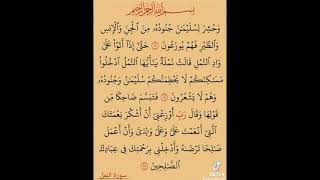 بسم الله الرحمن الرحيم
وَحُشِرَ لِسُلَيْمَٰنَ جُنُودُهُۥ مِنَ ٱلْجِنِّ وَٱلْإِنسِ
وَٱلطَّيْرِ فَهُمْ يُوزَعُونَ ١٧ حَتَّىٰٓ إِذَآ أَتَوْا۟ عَلَىٰ
وَادِ ٱلنَّمْلِ قَالَتْ نَمْلَةٌ يَٰٓأَيُّهَا ٱلنَّمْلُ ٱدْخُلُوا۟
مَسَٰكِنَكُمْ لَا يَحْطِمَنَّكُمْ سُلَيْمَٰنُ وَجُنُودُهُۥ
وَهُمْ لَا يَشْعُرُونَ ١٨ فَتَبَسَّمَ ضَاحِكًا مِّن
قَوْلِهَا وَقَالَ رَبِّ أَوْزِعْنِىٓ أَنْ أَشْكُرَ نِعْمَتَكَ
ٱلَّتِىٓ أَنْعَمْتَ عَلَىَّ وَعَلَىٰ وَٰلِدَىَّ وَأَنْ أَعْمَلَ
صَٰلِحًا تَرْضَىٰهُ وَأَدْخِلْنِى بِرَحْمَتِكَ فِى عِبَادِكَ
ٱلصَّٰلِحِينَ ١٩
سورة النمل
TikTok